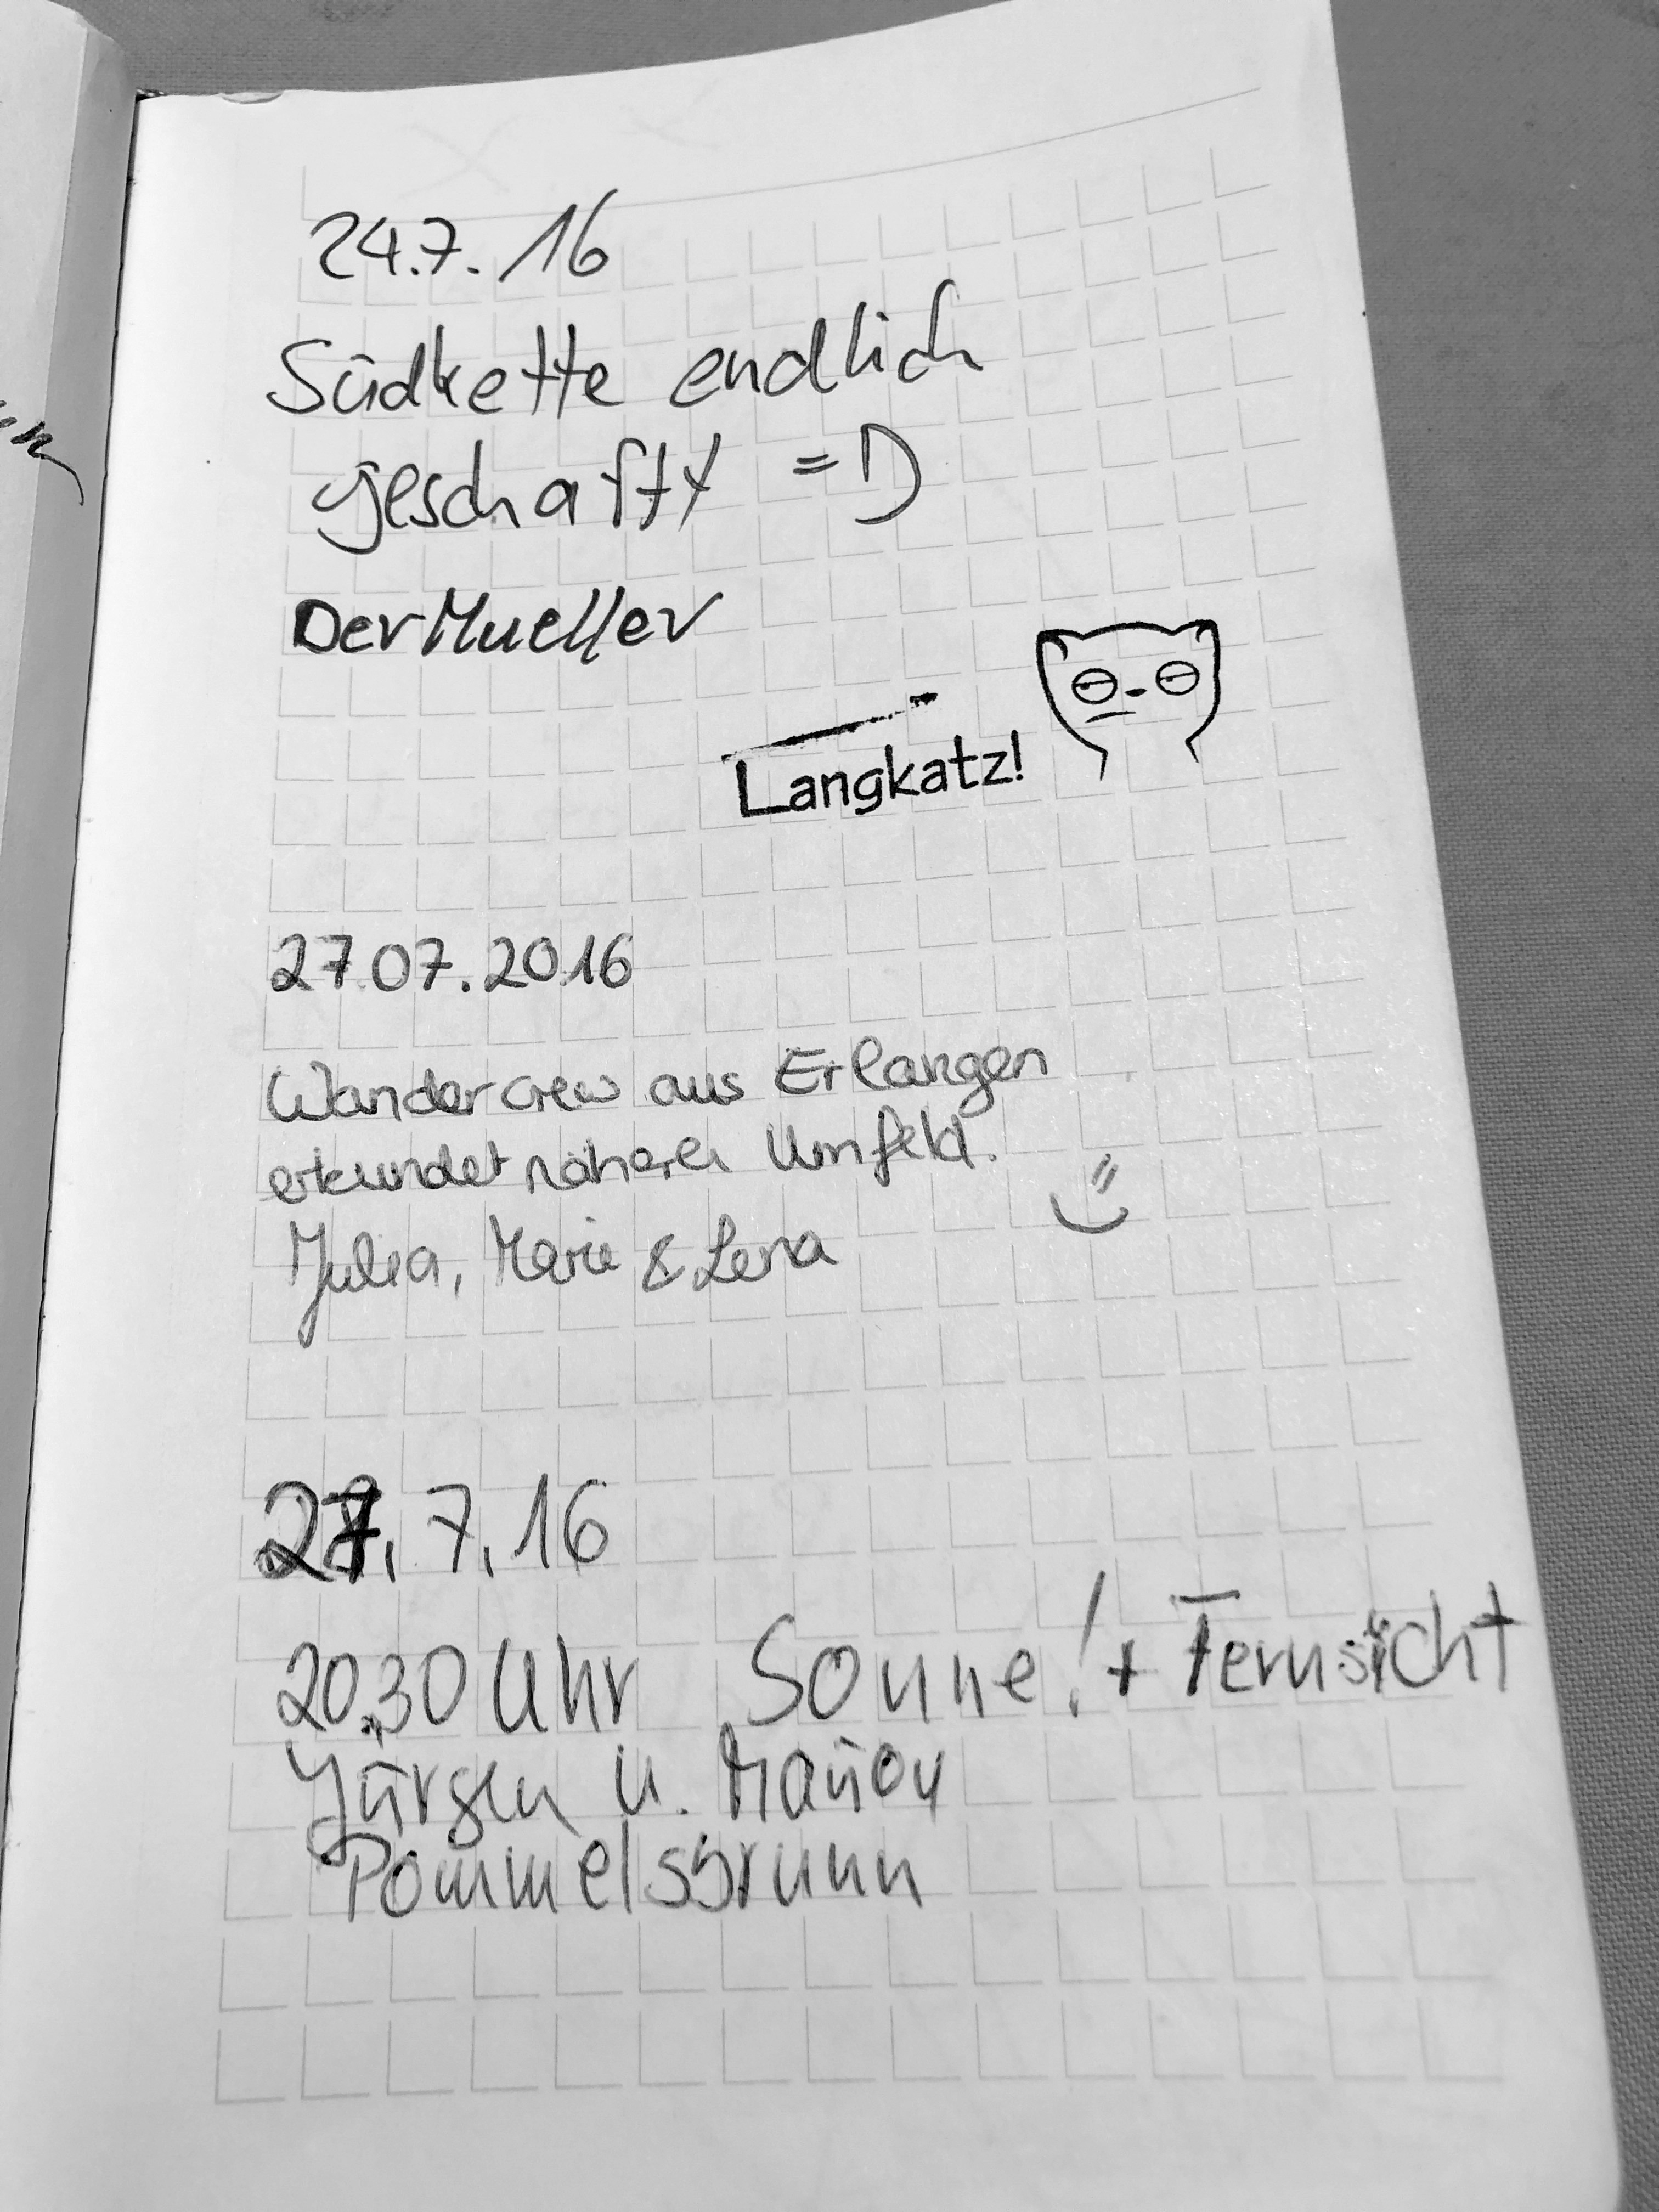 24.7.16
Südkette endlich
geschafft =D
DerMueller
Langkatz!
27.07.2016
Wandercrew aus Erlangen
erkundet näheres Umfeld.
Julia, Marie & Lena
27.7.16
20.30 Uhr Sonne! + Fernsicht
Jürgen u.
Pommelsbrunn